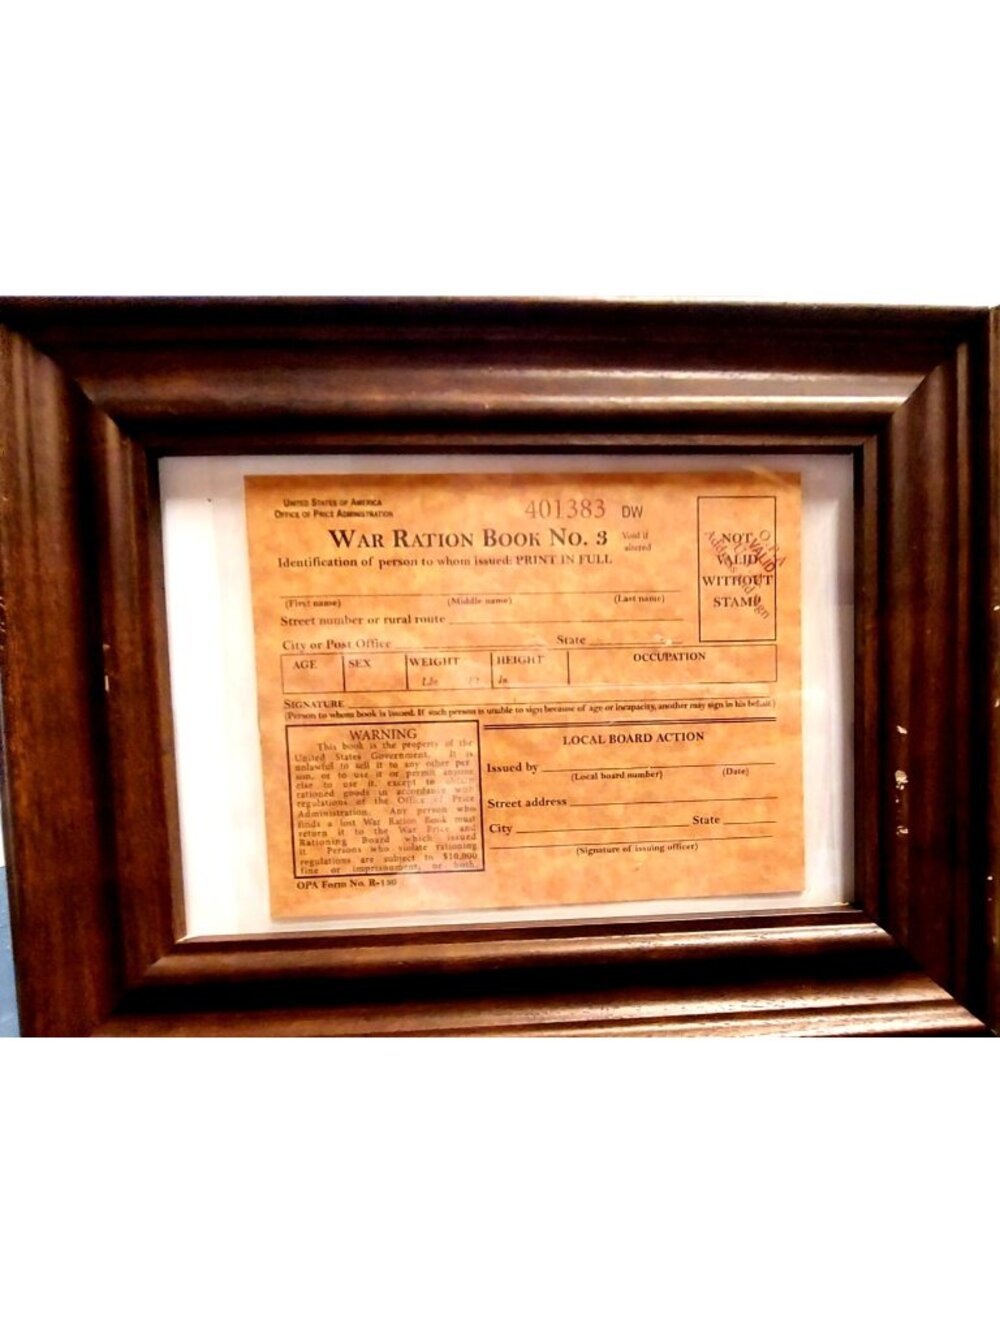 UNITED STATES OF AMERICA
OFFICE OF PRICE ADMINISTRATION
401383 DW
WAR RATION BOOK NO. 3
Void if
altered
Identification of person to whom issued: PRINT IN FULL
(First name) (Middle name) (Last name)
Street number or rural route
City or Post Office State
AGE SEX WEIGHT HEIGHT OCCUPATION
Lbs. Ft. In.
SIGNATURE
(Person to whom book is issued. If such person is unable to sign because of age or incapacity, another may sign in his behalf)
NOT
VALID
WITHOUT
STAMP
O.P.A
VALID
WARNING
This book is the property of the
United States Government. It is
unlawful to sell it to any other per
son, or to use it or permit anyone
else to use it, except to obtain
rationed goods in accordance with
regulations of the Office of Price
Administration. Any person who
finds a lost War Ration Book must
return it to the War Price and
Rationing Board which issued
it. Persons who violate rationing
regulations are subject to $10,000
fine or imprisonment, or both.
OPA Form No. R-130
LOCAL BOARD ACTION
Issued by
(Local board number) (Date)
Street address
City State
(Signature of issuing officer)